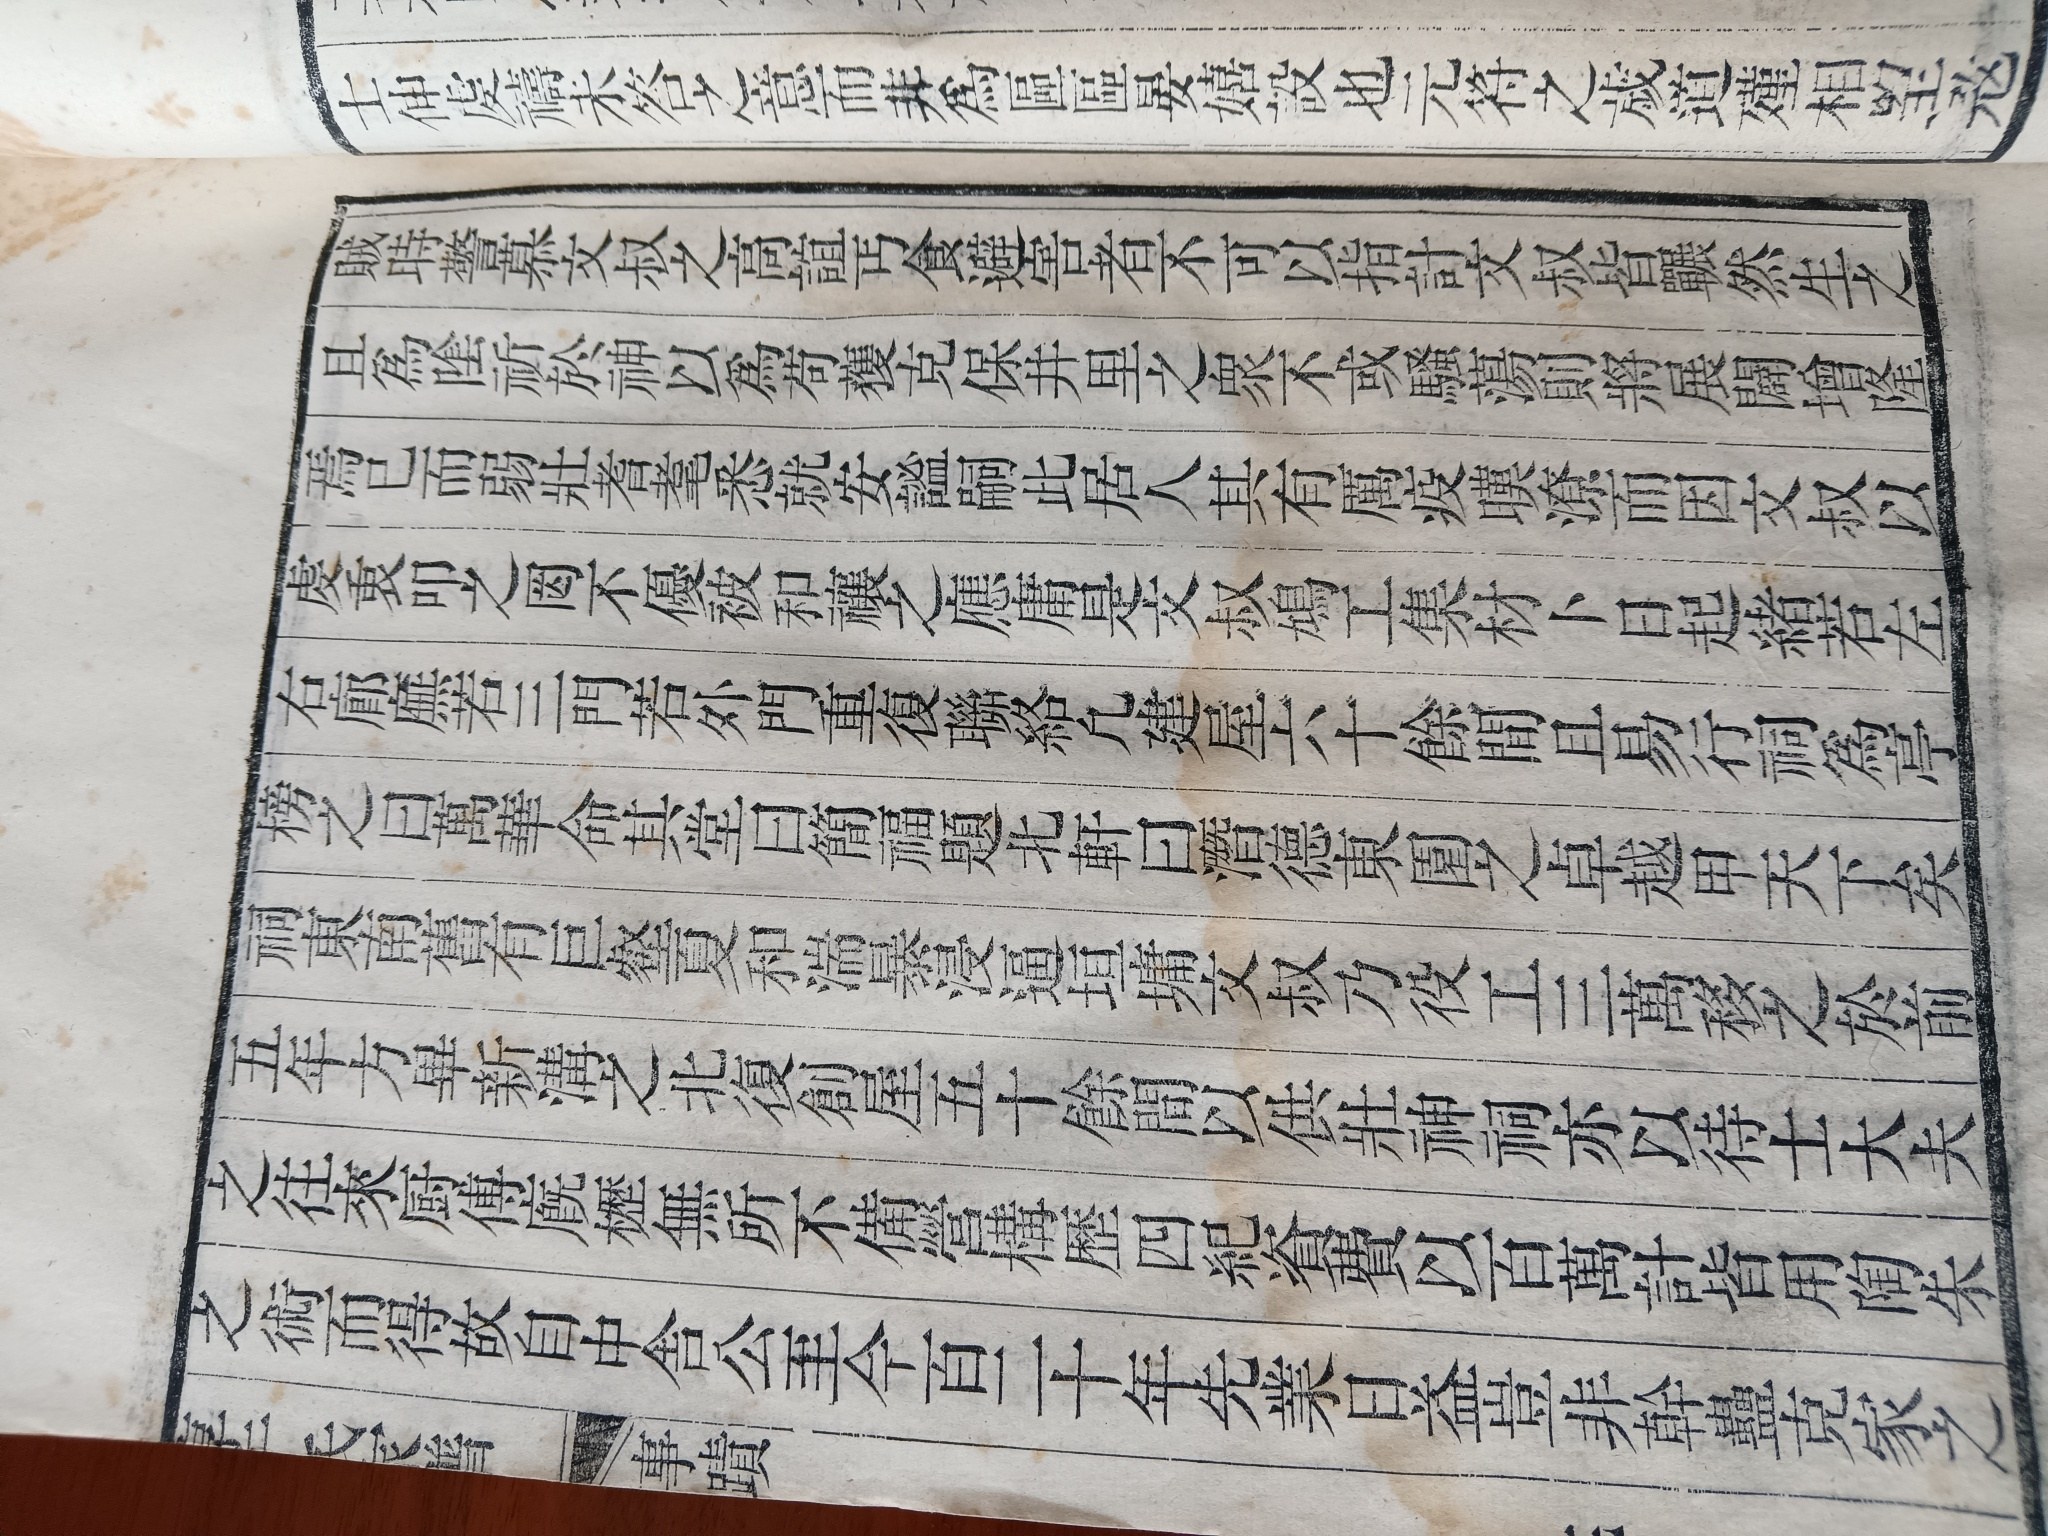 士神慶禱未答之意而井為區區晏嬉設也元符之歲道殣相望兇
賊時警慕文叔之高誼丐食遊害者不可以指計文叔皆飜然生之
且為陰祈於神以為苟獲克保井里之眾不或騷蕩則將展闢增隆
焉已而弱壯耆耄悉就安謐嗣此居人其有厲疫嘆潦而因文叔以
虔衷叩之罔不優被和禳之應旣是文叔鳩工集材卜日起緒若左
右廊廡若三門若外門重復聯絡凡建屋六十餘間且易行祠為亭
榜之曰萬華命其堂曰簡福題北軒曰潛德東園之卓越甲天下矣
祠東南舊有巨壑夏秋湍暴浸逼垣墉文叔乃役工三萬移之於前
五年方畢新溝之北復創屋五十餘間以供壯神祠亦以待士大夫
之往來廚傳廐櫪無所不備營構歷四紀資費以百萬計皆用陶朱
之術而得故自中舍公至今百二十年先業日益豈非幹蠱克家之
氏家譜
事蹟